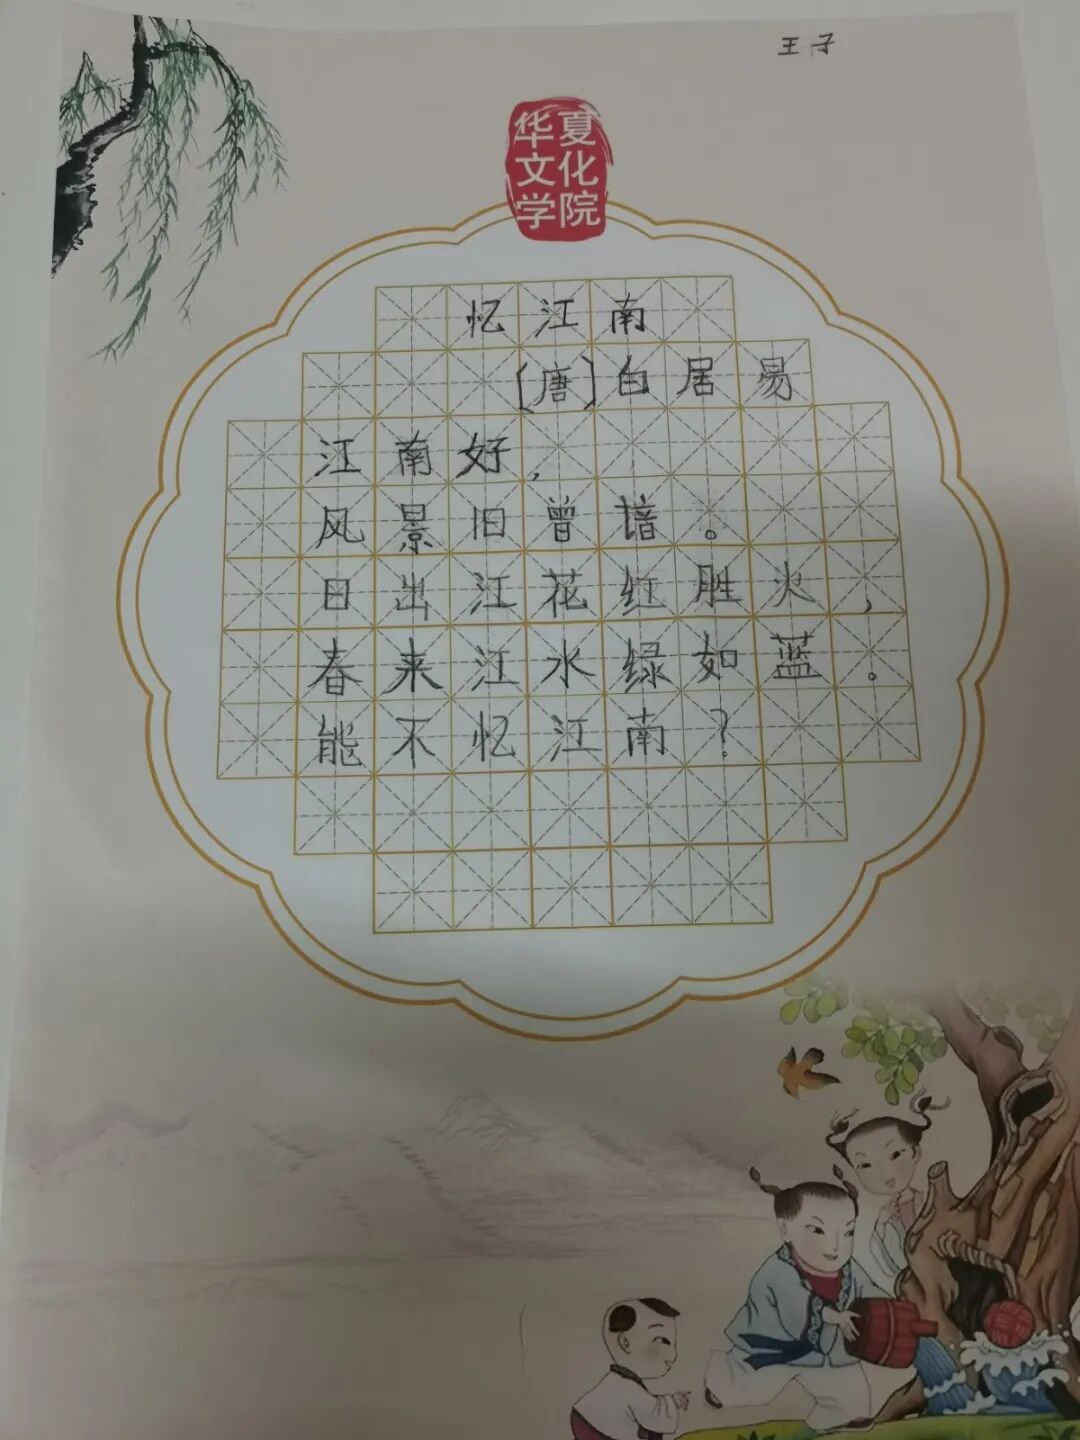 王子
华夏
文化
学院
忆江南
[唐]白居易
江南好，
风景旧曾谙。
日出江花红胜火，
春来江水绿如蓝。
能不忆江南？